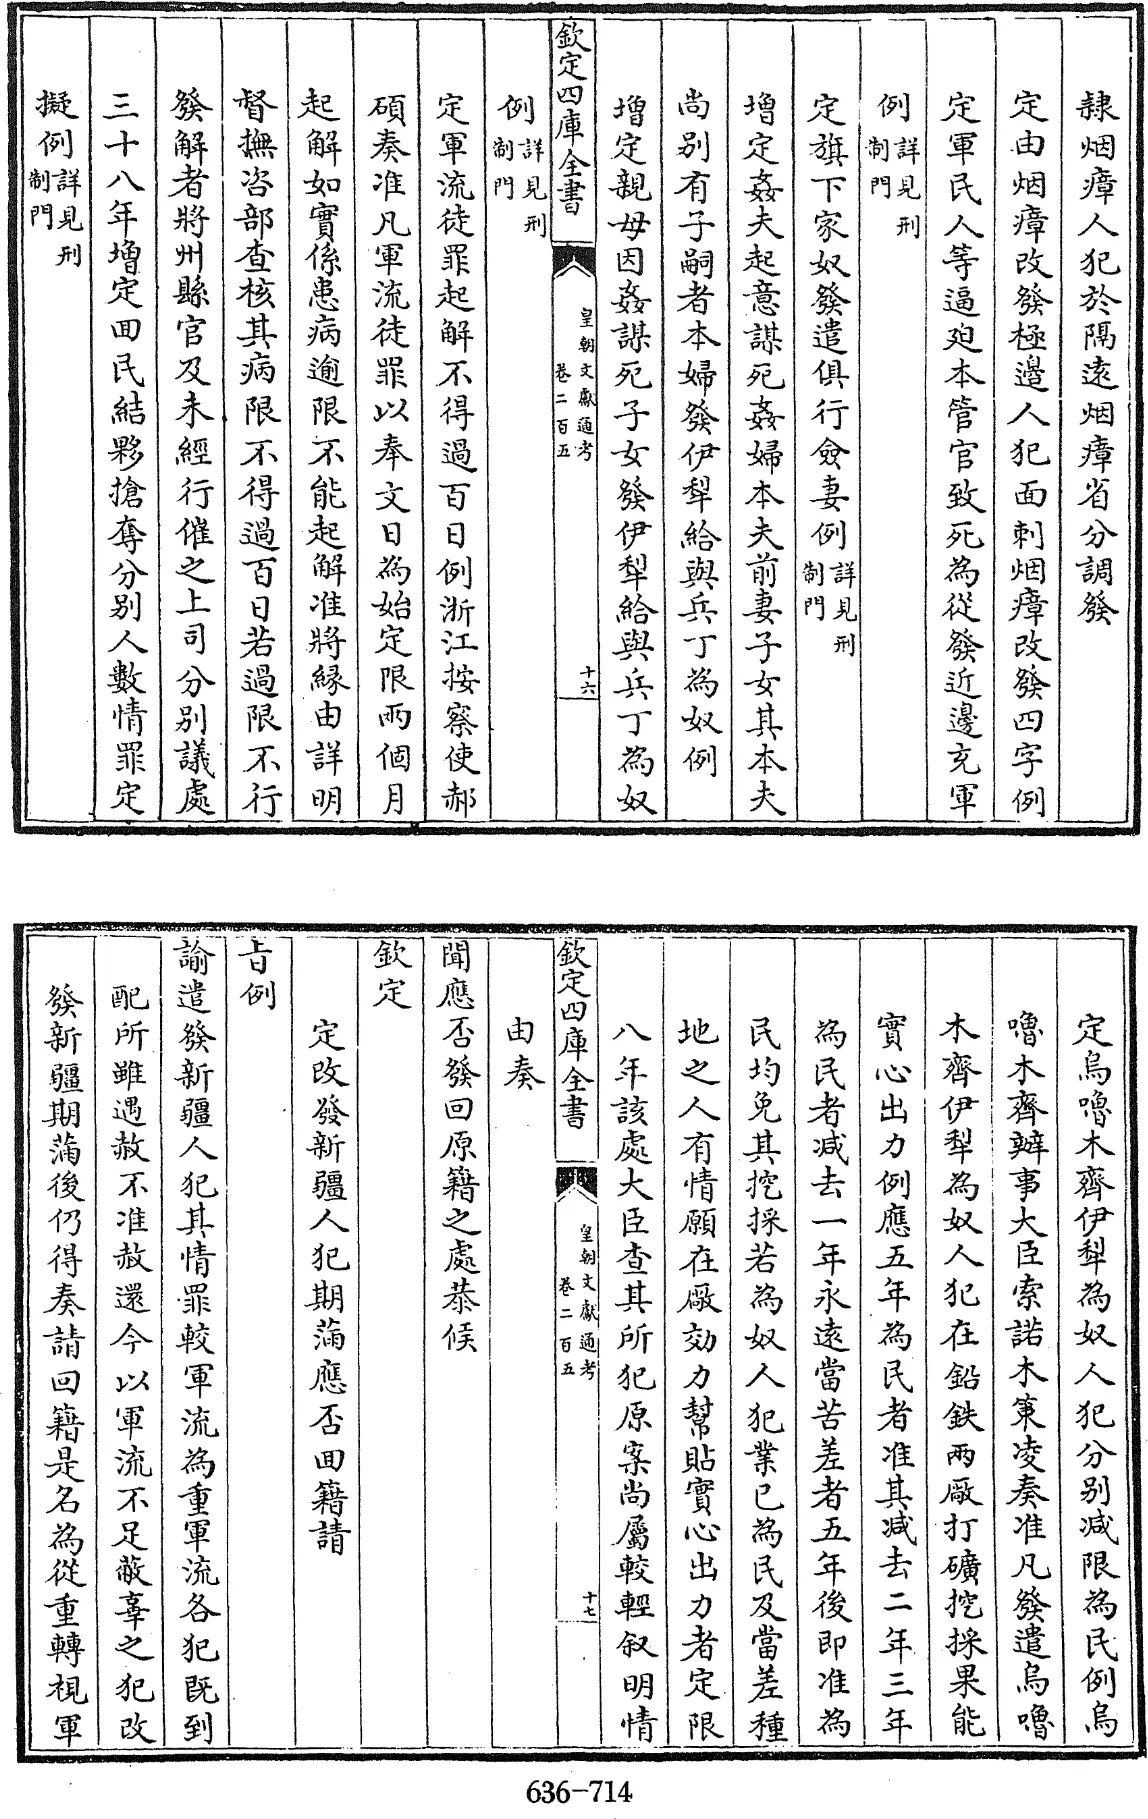 隸烟瘴人犯於隔遠烟瘴省分調發
定由烟瘴改發極邊人犯面刺烟瘴改發四字例
定軍民人等逼廹本管官致死為從發近邊充軍
例詳見刑制門
定旗下家奴發遣俱行僉妻例詳見刑制門
增定姦夫起意謀死姦婦本夫前妻子女其本夫
尚别有子嗣者本婦發伊犂給與兵丁為奴例
增定親母因姦謀死子女發伊犂給與兵丁為奴
欽定四庫全書
皇朝文獻通考
卷二百五
十六
例詳見刑制門
定軍流徒罪起解不得過百日例浙江按察使郝
碩奏准凡軍流徒罪以奉文日為始定限兩個月
起解如實係患病逾限不能起解准將緣由詳明
督撫咨部查核其病限不得過百日若過限不行
發解者將州縣官及未經行催之上司分别議處
三十八年增定回民結夥搶奪分别人數情罪定
擬例詳見刑制門
定烏嚕木齊伊犂為奴人犯分别減限為民例烏
嚕木齊辦事大臣索諾木䇿凌奏准凡發遣烏嚕
木齊伊犂為奴人犯在鉛鉄兩廠打礦挖採果能
實心出力例應五年為民者准其減去二年三年
為民者减去一年永遠當苦差者五年後即准為
民均免其挖採若為奴人犯業已為民及當差種
地之人有情願在廠効力幇貼實心出力者定限
八年該處大臣查其所犯原案尚屬較輕叙明情
欽定四庫全書
皇朝文獻通考
卷二百五
十七
由奏
聞應否發回原籍之處恭候
欽定
定改發新疆人犯期滿應否回籍請
㫖例
諭遣發新疆人犯其情罪較軍流為重軍流各犯既到
配所雖遇赦不准赦還今以軍流不足蔽辜之犯改
發新疆期滿後仍得奏請回籍是名為從重轉視軍
636-714